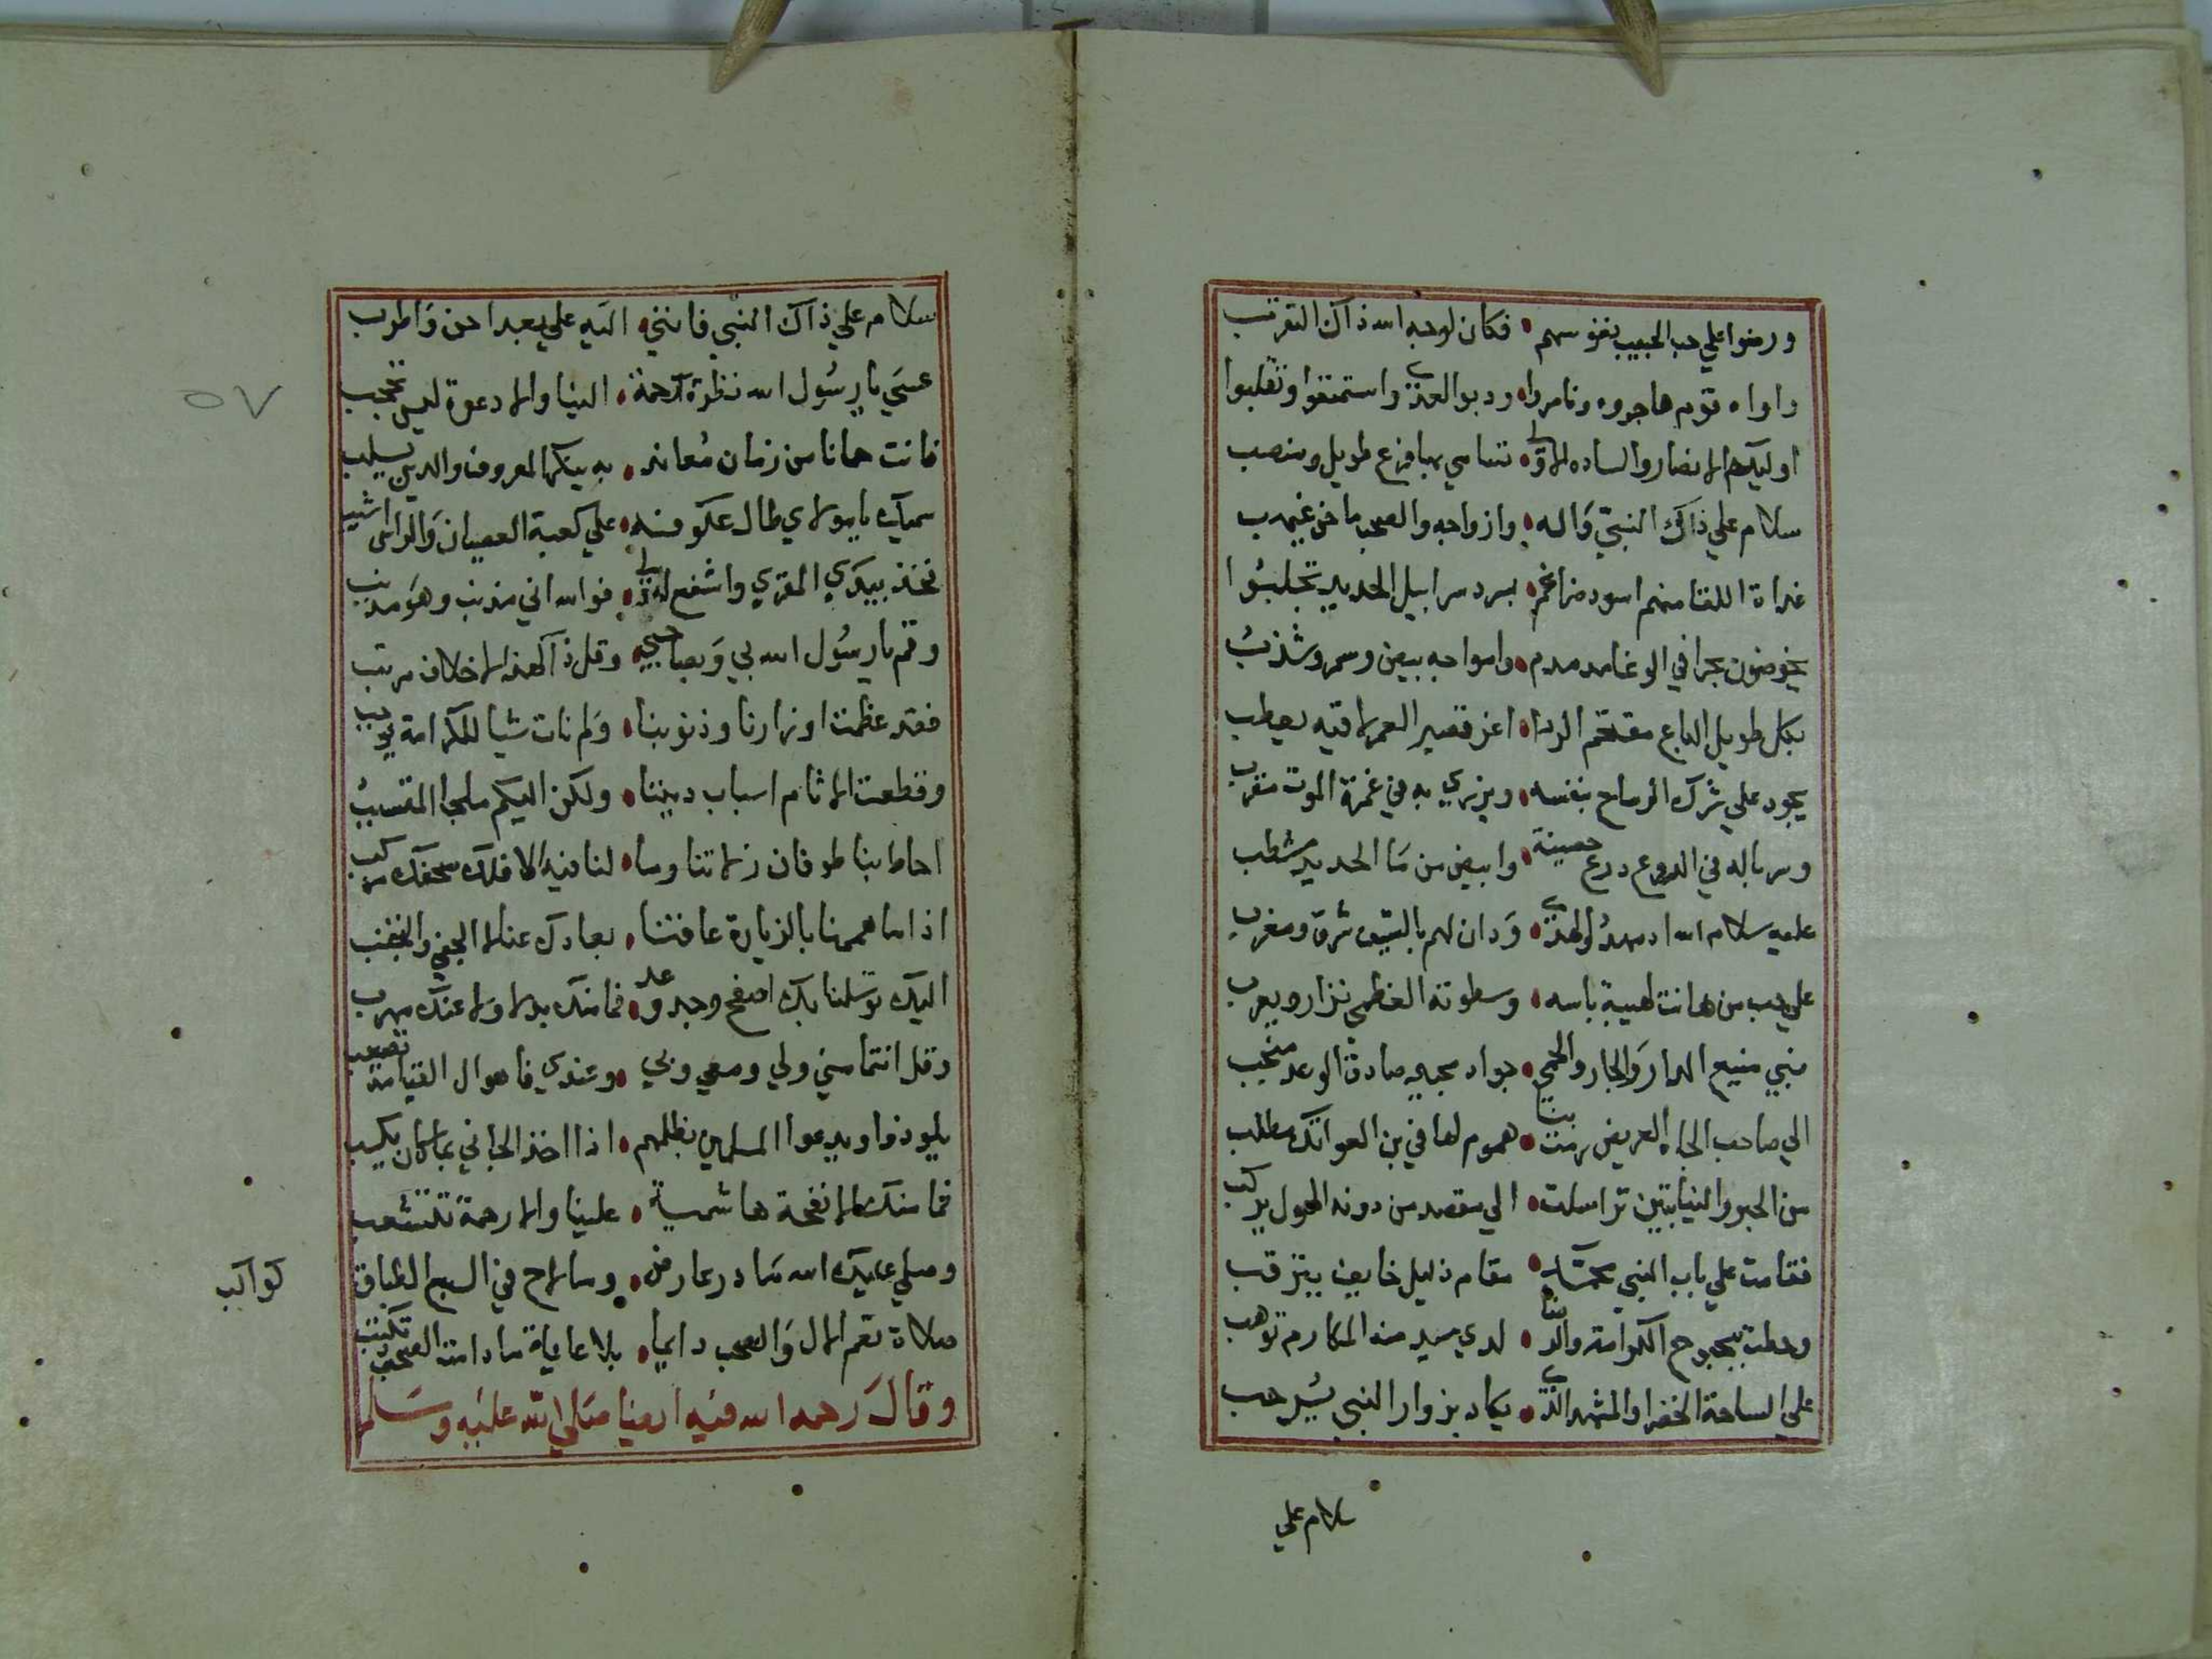 ورضوا علي حب الحبيب بنفوسهم • فكان لوجه الله ذاك التقرب
واواه قوم هاجروه وناصروا • ودبوا العدى واستمنعوا وتغلبوا
اوليك هم الانصار والساده الاولى • تسامي بها فزع طويل ومنصب
سلام علي ذاك النبي واله • وازواجه والصحب ما جن غيهب
غداة اللقا منهم اسود ضراغم • بسرد سرابيل الحديد تجلببوا
يخوضون بحرا في الوغا مدمدم • وامواجه بيض وسمر وشذب
بكل طويل الباع مقتحم الردا • اغر قصير العمر لاقيه يعطب
يجود علي شرك الرماح بنفسه • ويزري به في غمرة الموت مقرب
وسرباله في الدروع درع حصينة • وابيض من ما الحديد مشطب
عليه سلام الله اد مهدوا الهدى • ودان لهم بالسيف شرق ومغرب
علي حب من هانت لهيبة باسه • وسطوته العظمي نزار ويعرب
نبي منيع الدار والجار والحمي • جواد مجير صادق الوعد منجب
الي صاحب الجاه العريض رمت بنا • هموم لها في بن العواتك مطلب
من الحبر والنيابتين تراسلت • الي مقصد من دونه الهول يركب
فقامت علي باب النبي محمد • مقام ذليل خايف يترقب
وحطت ببحبوح الكرامة والدنا • لدي سيد منه المكارم توهب
علي الساحة الخضرا والمشهد الذي • يكاد بزوار النبي يرحب
سلام علي
سلام علي ذاك النبي فانني • اليه علي بعد احن واطرب
عسي يا رسول الله نظرة رحمة • الينا والا دعوة ليس تحجب
فانت حمانا من زمان معاند • به ينكر المعروف والدين يسلب
سميك يا مولاي طال عكوفنه • علي كعبة العصيان والراس اشيب
فخذ بيدي المقري واشفع له • فوالله اني مذنب وهو مذنب
وقم يا رسول الله بي وبصاحبي • وقل ذا لهذا خلاف مرتب
فقد عظمت اوزارنا وذنوبنا • ولم نات شيا للكرامة يوجب
وقطعت الاثام اسباب ديننا • ولكن اليكم ملجا المتسبب
احاط بنا طوفان زلاتنا وما • لنا فيه الا فلك عفوك مركب
اذا ما هممنا بالزيارة عاقنا • بعادك عنا لا الجفي والتجنب
اليك توسلنا بك اصفح وجد وعد • فما منك بد لا ولا عنك مهرب
وقل انتما مني ولي ومعي وبي • وعندي فاهوال القيامة تصعب
يلوذوا ويدعوا المسلمين بظلمهم • اذا اخذ الجاني بما كان يكسب
فما منك الا نفحة هاشمية • علينا والا رحمة تتشعب
وصلي عليك الله ما در عارض • وما لاح في السبع الطباق
كواكب
صلاة تعم الال والصحب دايما • بلا غاية ما دامت الصحف تكتب
وقال رحمه الله فيه ايضا صلي الله عليه وسلم
٥٧